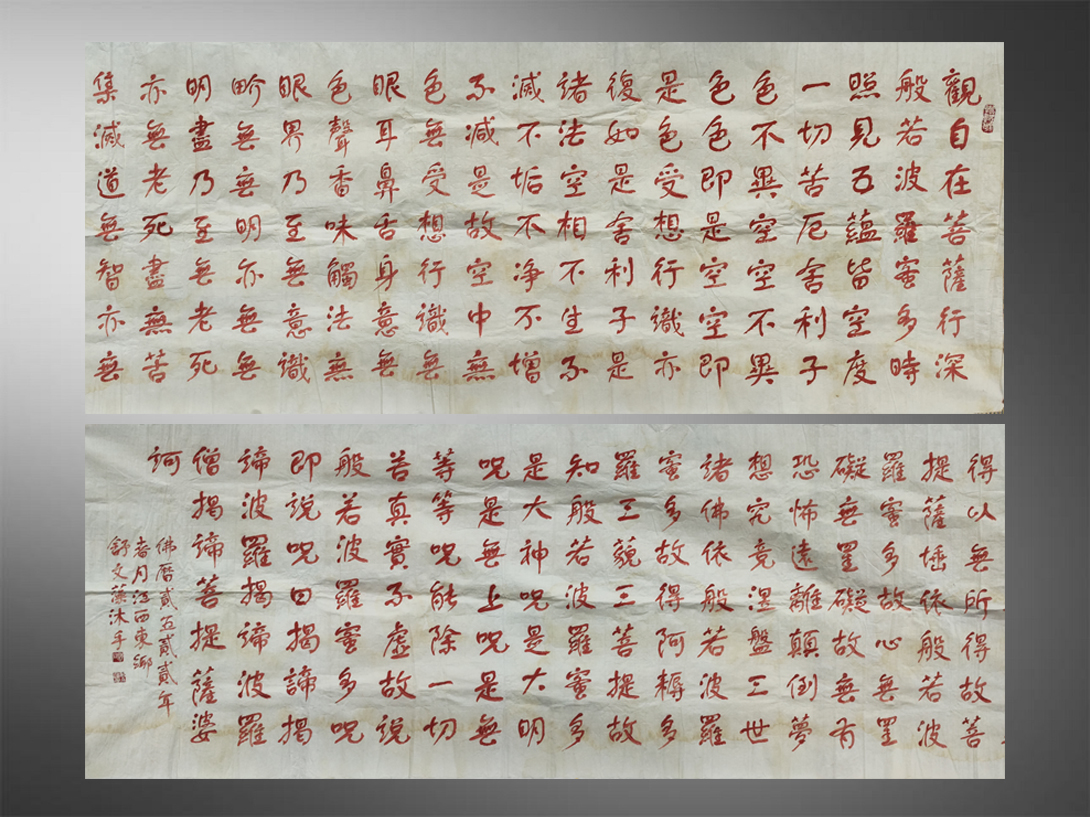 觀自在菩薩行深
般若波羅蜜多時
照見五蘊皆空度
一切苦厄舍利子
色不異空空不異
色色即是空空即
是色受想行識亦
復如是舍利子是
諸法空相不生不
滅不垢不净不增
不減是故空中無
色無受想行識無
眼耳鼻舌身意無
色聲香味觸法無
眼界乃至無意識
畍無無明亦無無
明盡乃至無老死
亦無老死盡無苦
集滅道無智亦無
得以無所得故菩
提薩埵依般若波
羅蜜多故心無罣
礙無罣礙故無有
恐怖遠離顛倒夢
想究竟涅盤三世
諸佛依般若波羅
蜜多故得阿耨多
羅三藐三菩提故
知般若波羅蜜多
是大神呪是大明
呪是無上呪是無
等等呪能除一切
苦真實不虛故說
般若波羅蜜多呪
即說呪曰揭諦揭
諦波羅揭諦波羅
僧揭諦菩提薩婆
訶
佛暦貳五貳貳年
春月江西東鄉
舒文藻沐手